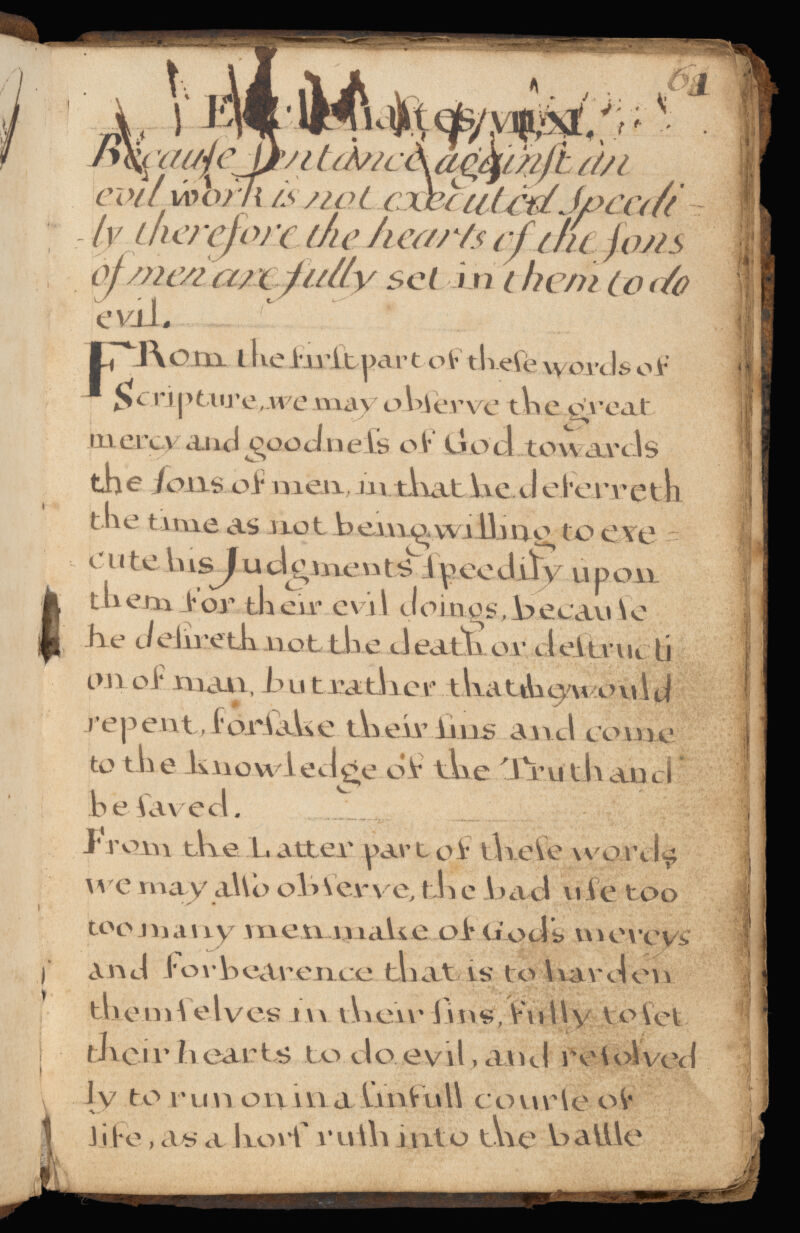 61
Ecclesiastes, VIII, XI.
Becauſe ſentance againſt an
evil work is not executed ſpeedi-
ly therefore the hearts of the ſons
of men are fully set in them to do
evil.
FRom the firſt part of theſe words of
Scripture, we may obſerve the great
mercy and goodneſs of God towards
the ſons of men, in that he deferreth
the time as not being willing to exe=
cute his Judgments ſpeedily upon
them for their evil doings, becauſe
he deſireth not the death or deſtructi
on of man, but rather that they would
repent, forſake their ſins and come
to the knowledge of the Truth and
be ſaved.
From the Latter part of theſe words
we may allſo obſerve, the bad uſe too
too many men make of God's mercys
and forbearence that is to harden
themſelves in their ſins, fully to ſet
their hearts to do evil, and reſolved
ly to run on in a ſinfull courſe of
life, as a horſ ruſh into the battle